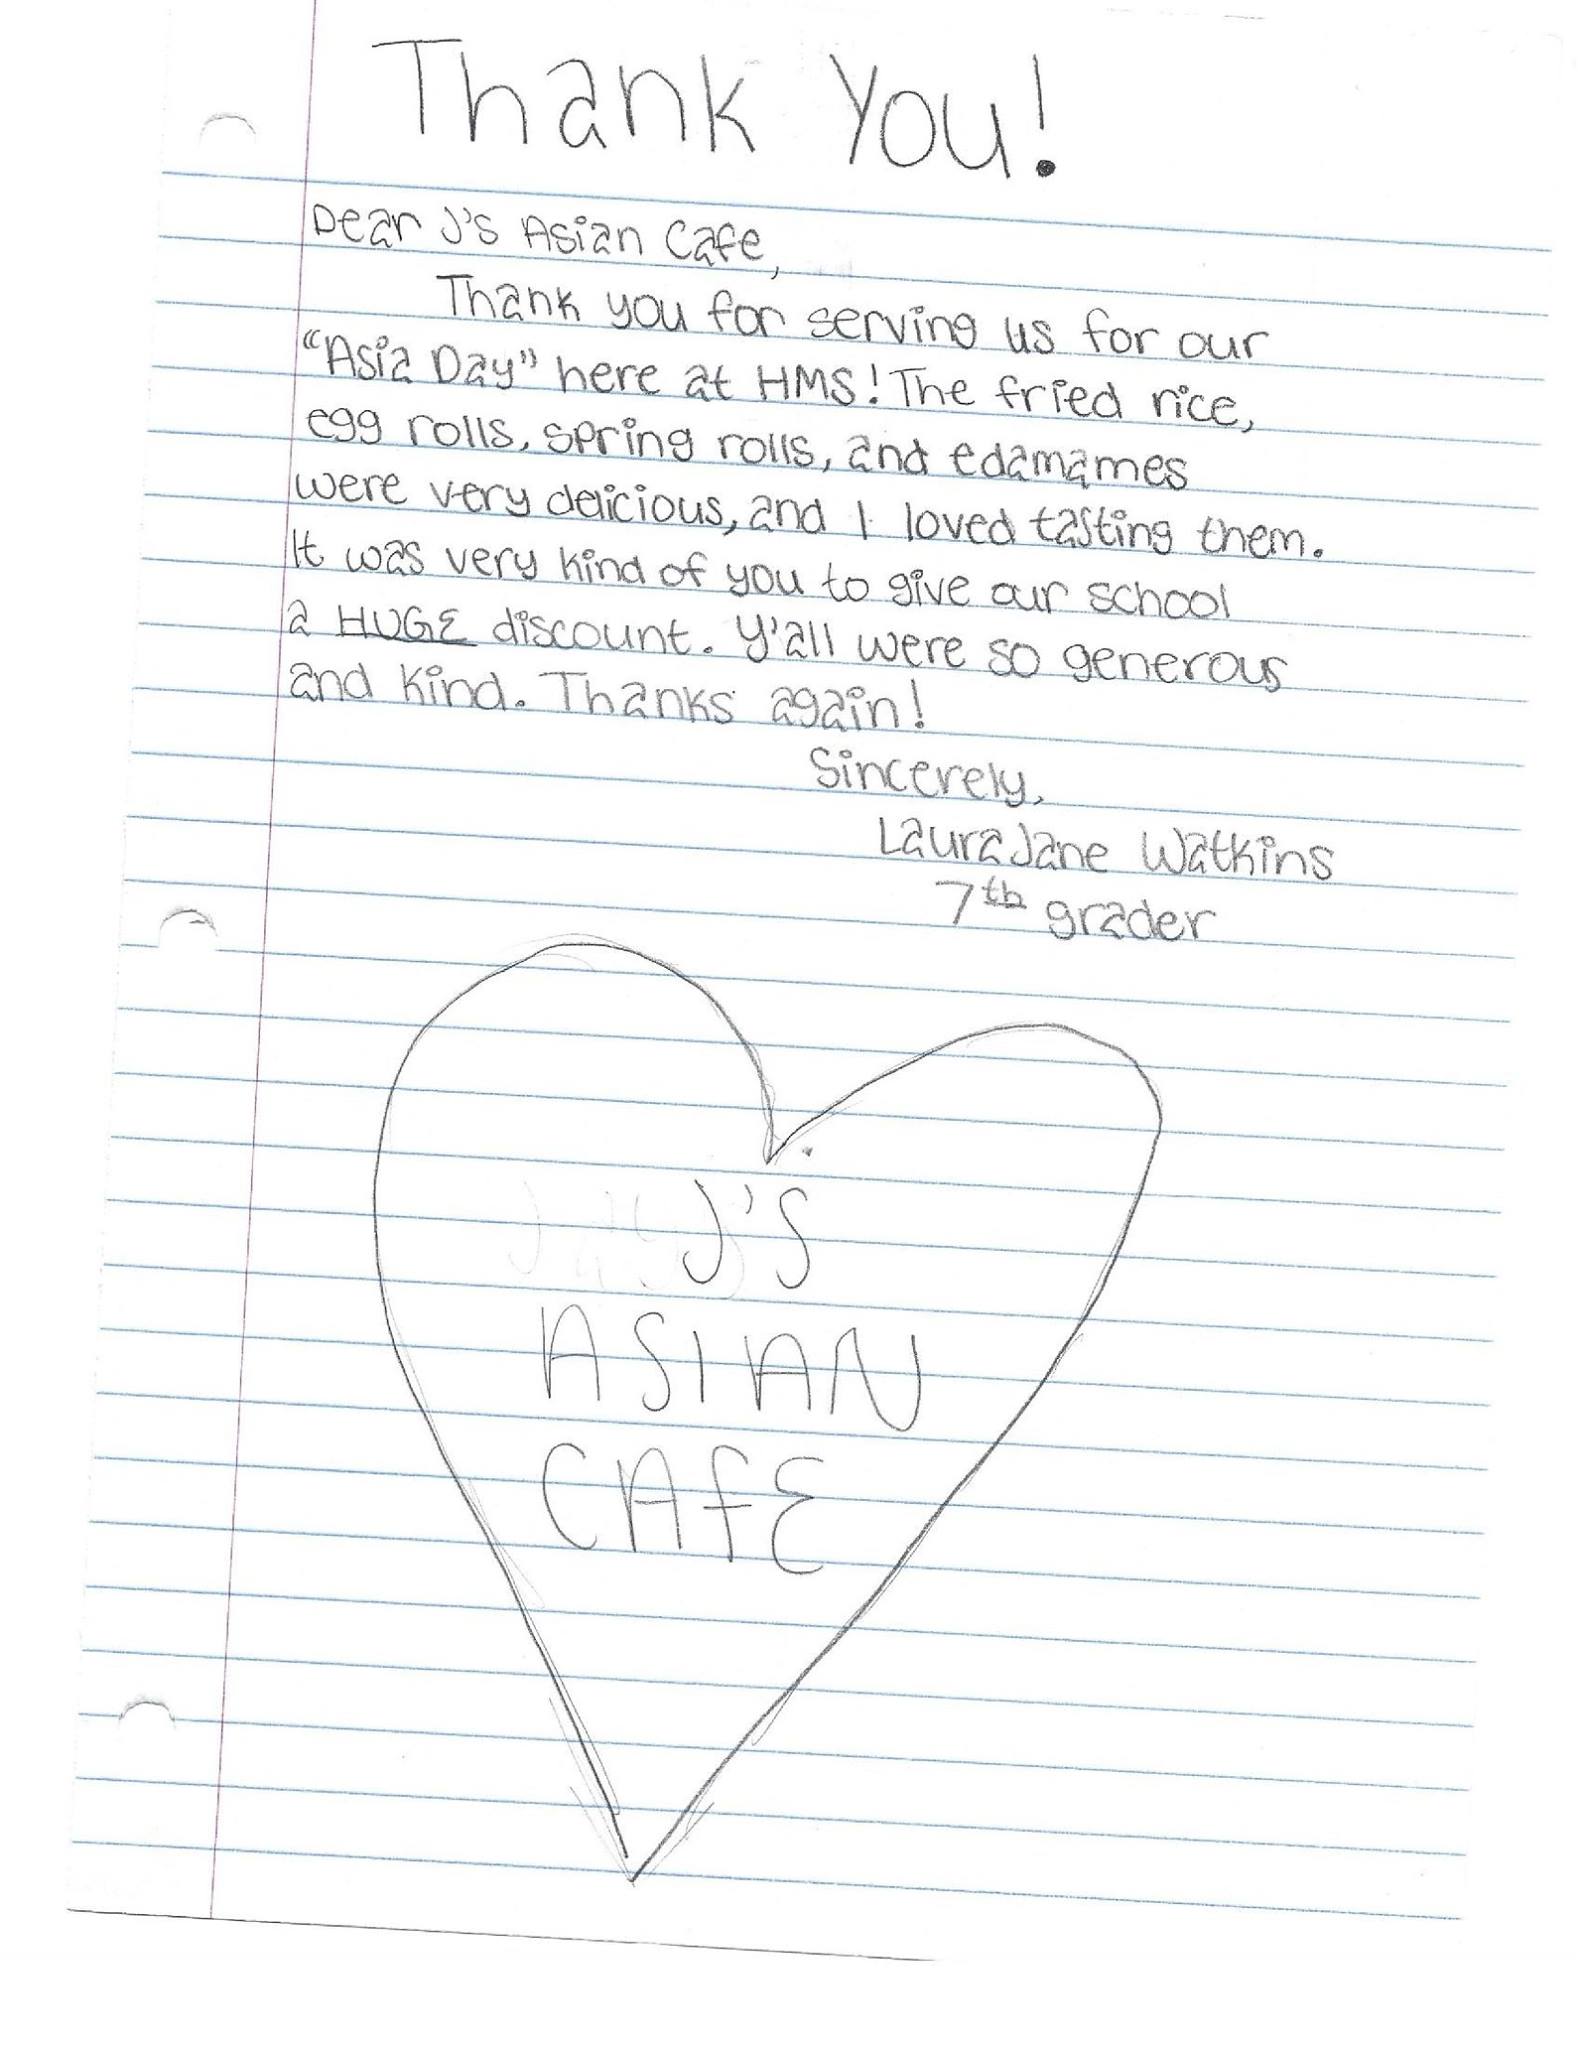 Thank You!
Dear J's Asian Cafe,
Thank you for serving us for our
"Asia Day" here at HMS! The fried rice,
egg rolls, spring rolls, and edamames
were very delicious, and I loved tasting them.
It was very kind of you to give our school
a HUGE discount. Y'all were so generous
and kind. Thanks again!
Sincerely,
LauraJane Watkins
7th grader
J'S
ASIAN
CAfE